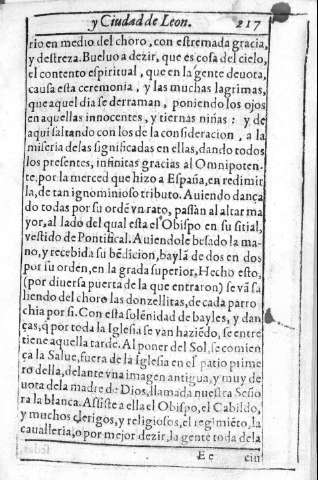 y Ciudad de Leon. 217
rio en medio del choro, con estremada gracia,
y destreza. Bueluo a dezir, que es cosa del cielo,
el contento espiritual, que en la gente deuota,
causa esta ceremonia, y las muchas lagrimas,
que aquel dia se derraman, poniendo los ojos
en aquellas innocentes, y tiernas niñas: y de
aqui saltando con los de la consideracion, a la
miseria de las significadas en ellas, dando todos
los presentes, infinitas gracias al Omnipoten-
te, por la merced que hizo a España, en redimir
la, de tan ignominioso tributo. Auiendo dança
do todas por su ordẽ vn rato, passan al altar ma
yor, al lado del qual esta el Obispo en su sitial,
vestido de Pontifical. Auiendole besado la ma-
no, y recebida su bẽdicion, baylã de dos en dos
por su orden, en la grada superior. Hecho esto,
(por diuersa puerta de la que entraron) se vã sa
liendo del choro las donzellitas, de cada parro
chia por si. Con esta solẽnidad de bayles, y dan
ças, q̃ por toda la Iglesia se van haziẽdo, se entre
tiene aquella tarde. Al poner del Sol, se comien
ça la Salue, fuera de la Iglesia en el patio prime
ro della, delante vna imagen antigua, y muy de
uota de la madre de Dios, llamada nuestra Seño
ra la blanca. Assiste a ella el Obispo, el Cabildo,
y muchos clerigos, y religiosos, el regimiẽto, la
caualleria, o por mejor dezir, la gente toda de la
Ee ciu